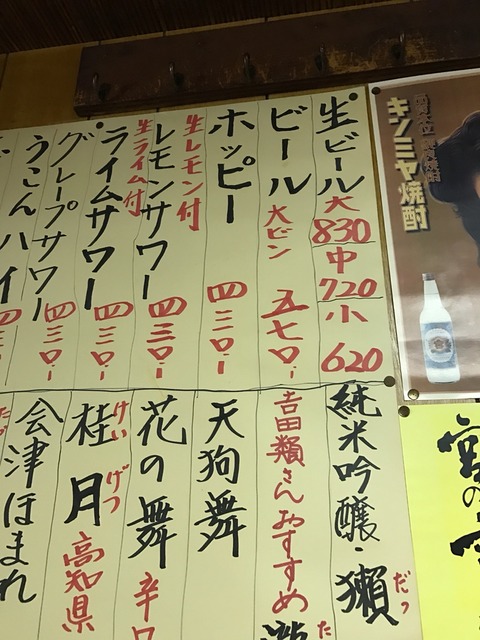 生ビール 大 830 中 720 小 620
ビール 大ビン 五七〇.-
ホッピー 四三〇.-
生レモン付
レモンサワー 四三〇.-
生ライム付
ライムサワー 四三〇.-
グレープサワー 四三〇.-
うこんハイ
純米吟醸・獺 だっ
吉田類さんおすすめ
天狗舞
花の舞 辛口
桂月 けいげつ 高知県
会津ほまれ
キンミヤ焼酎